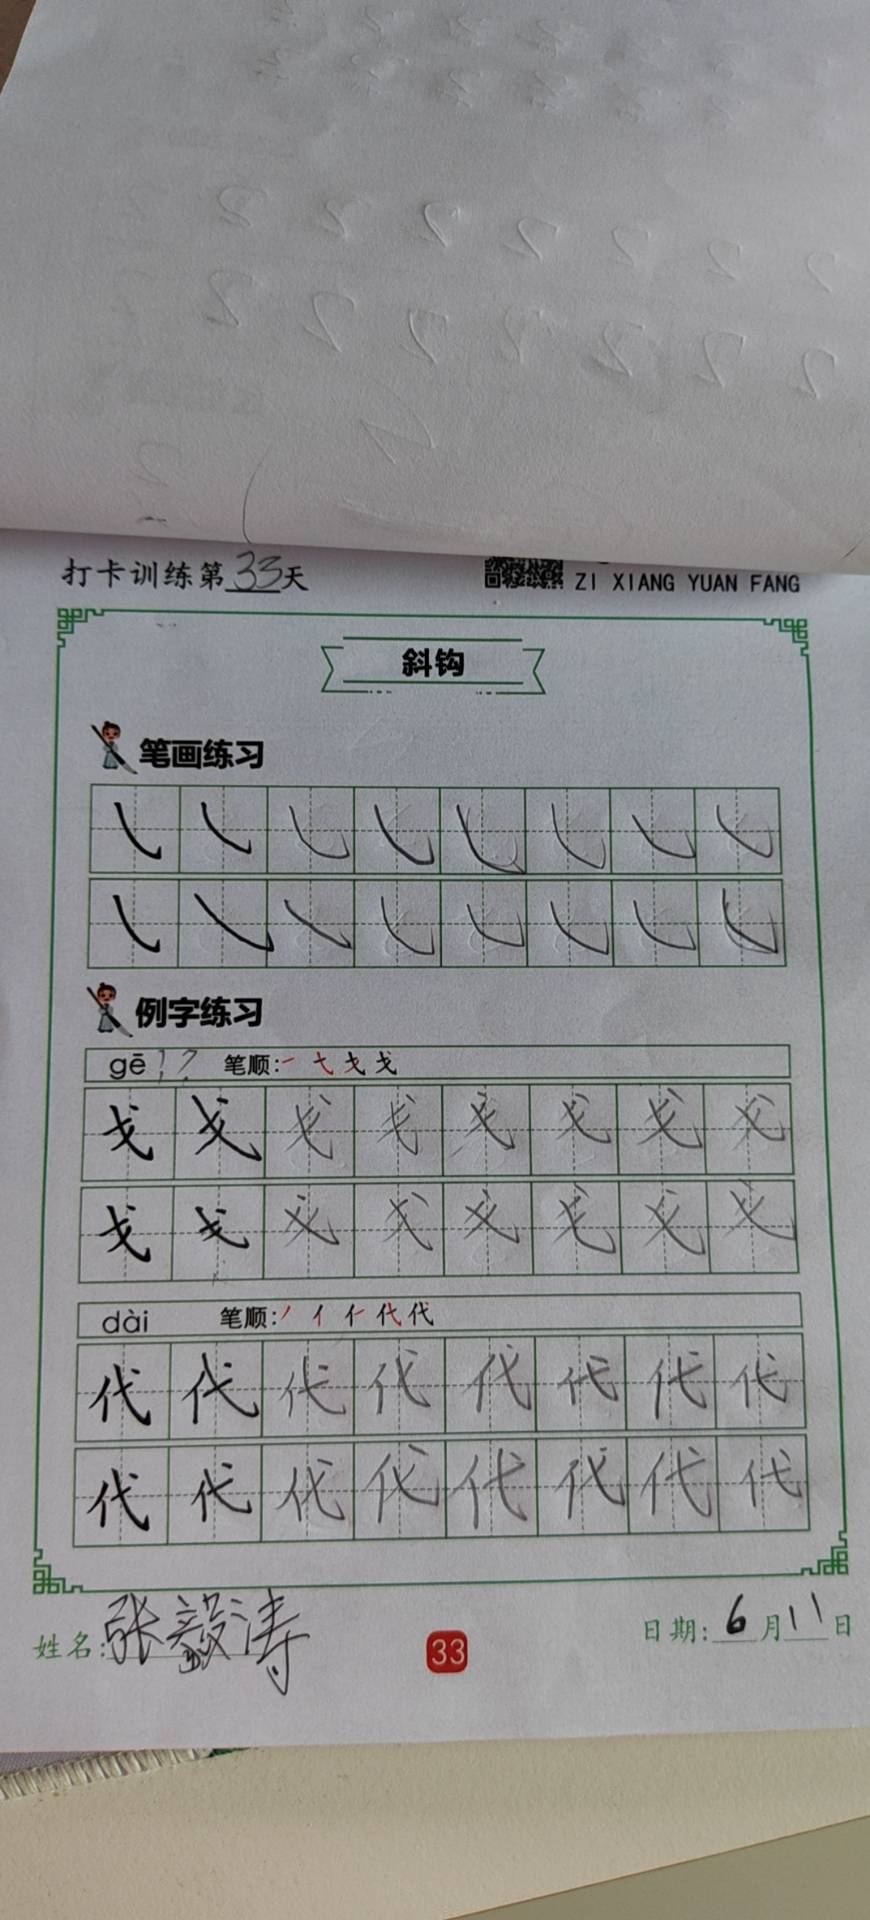 打卡训练第33天
ZI XIANG YUAN FANG
斜钩
笔画练习
例字练习
gē 笔顺:
戈 戈 戈 戈 戈 戈 戈 戈
戈 戈 戈 戈 戈 戈 戈 戈
dài 笔顺: 代 代
代 代 代 代 代 代 代 代
代 代 代 代 代 代 代 代
姓名:张毅涛
33
日期:6月11日